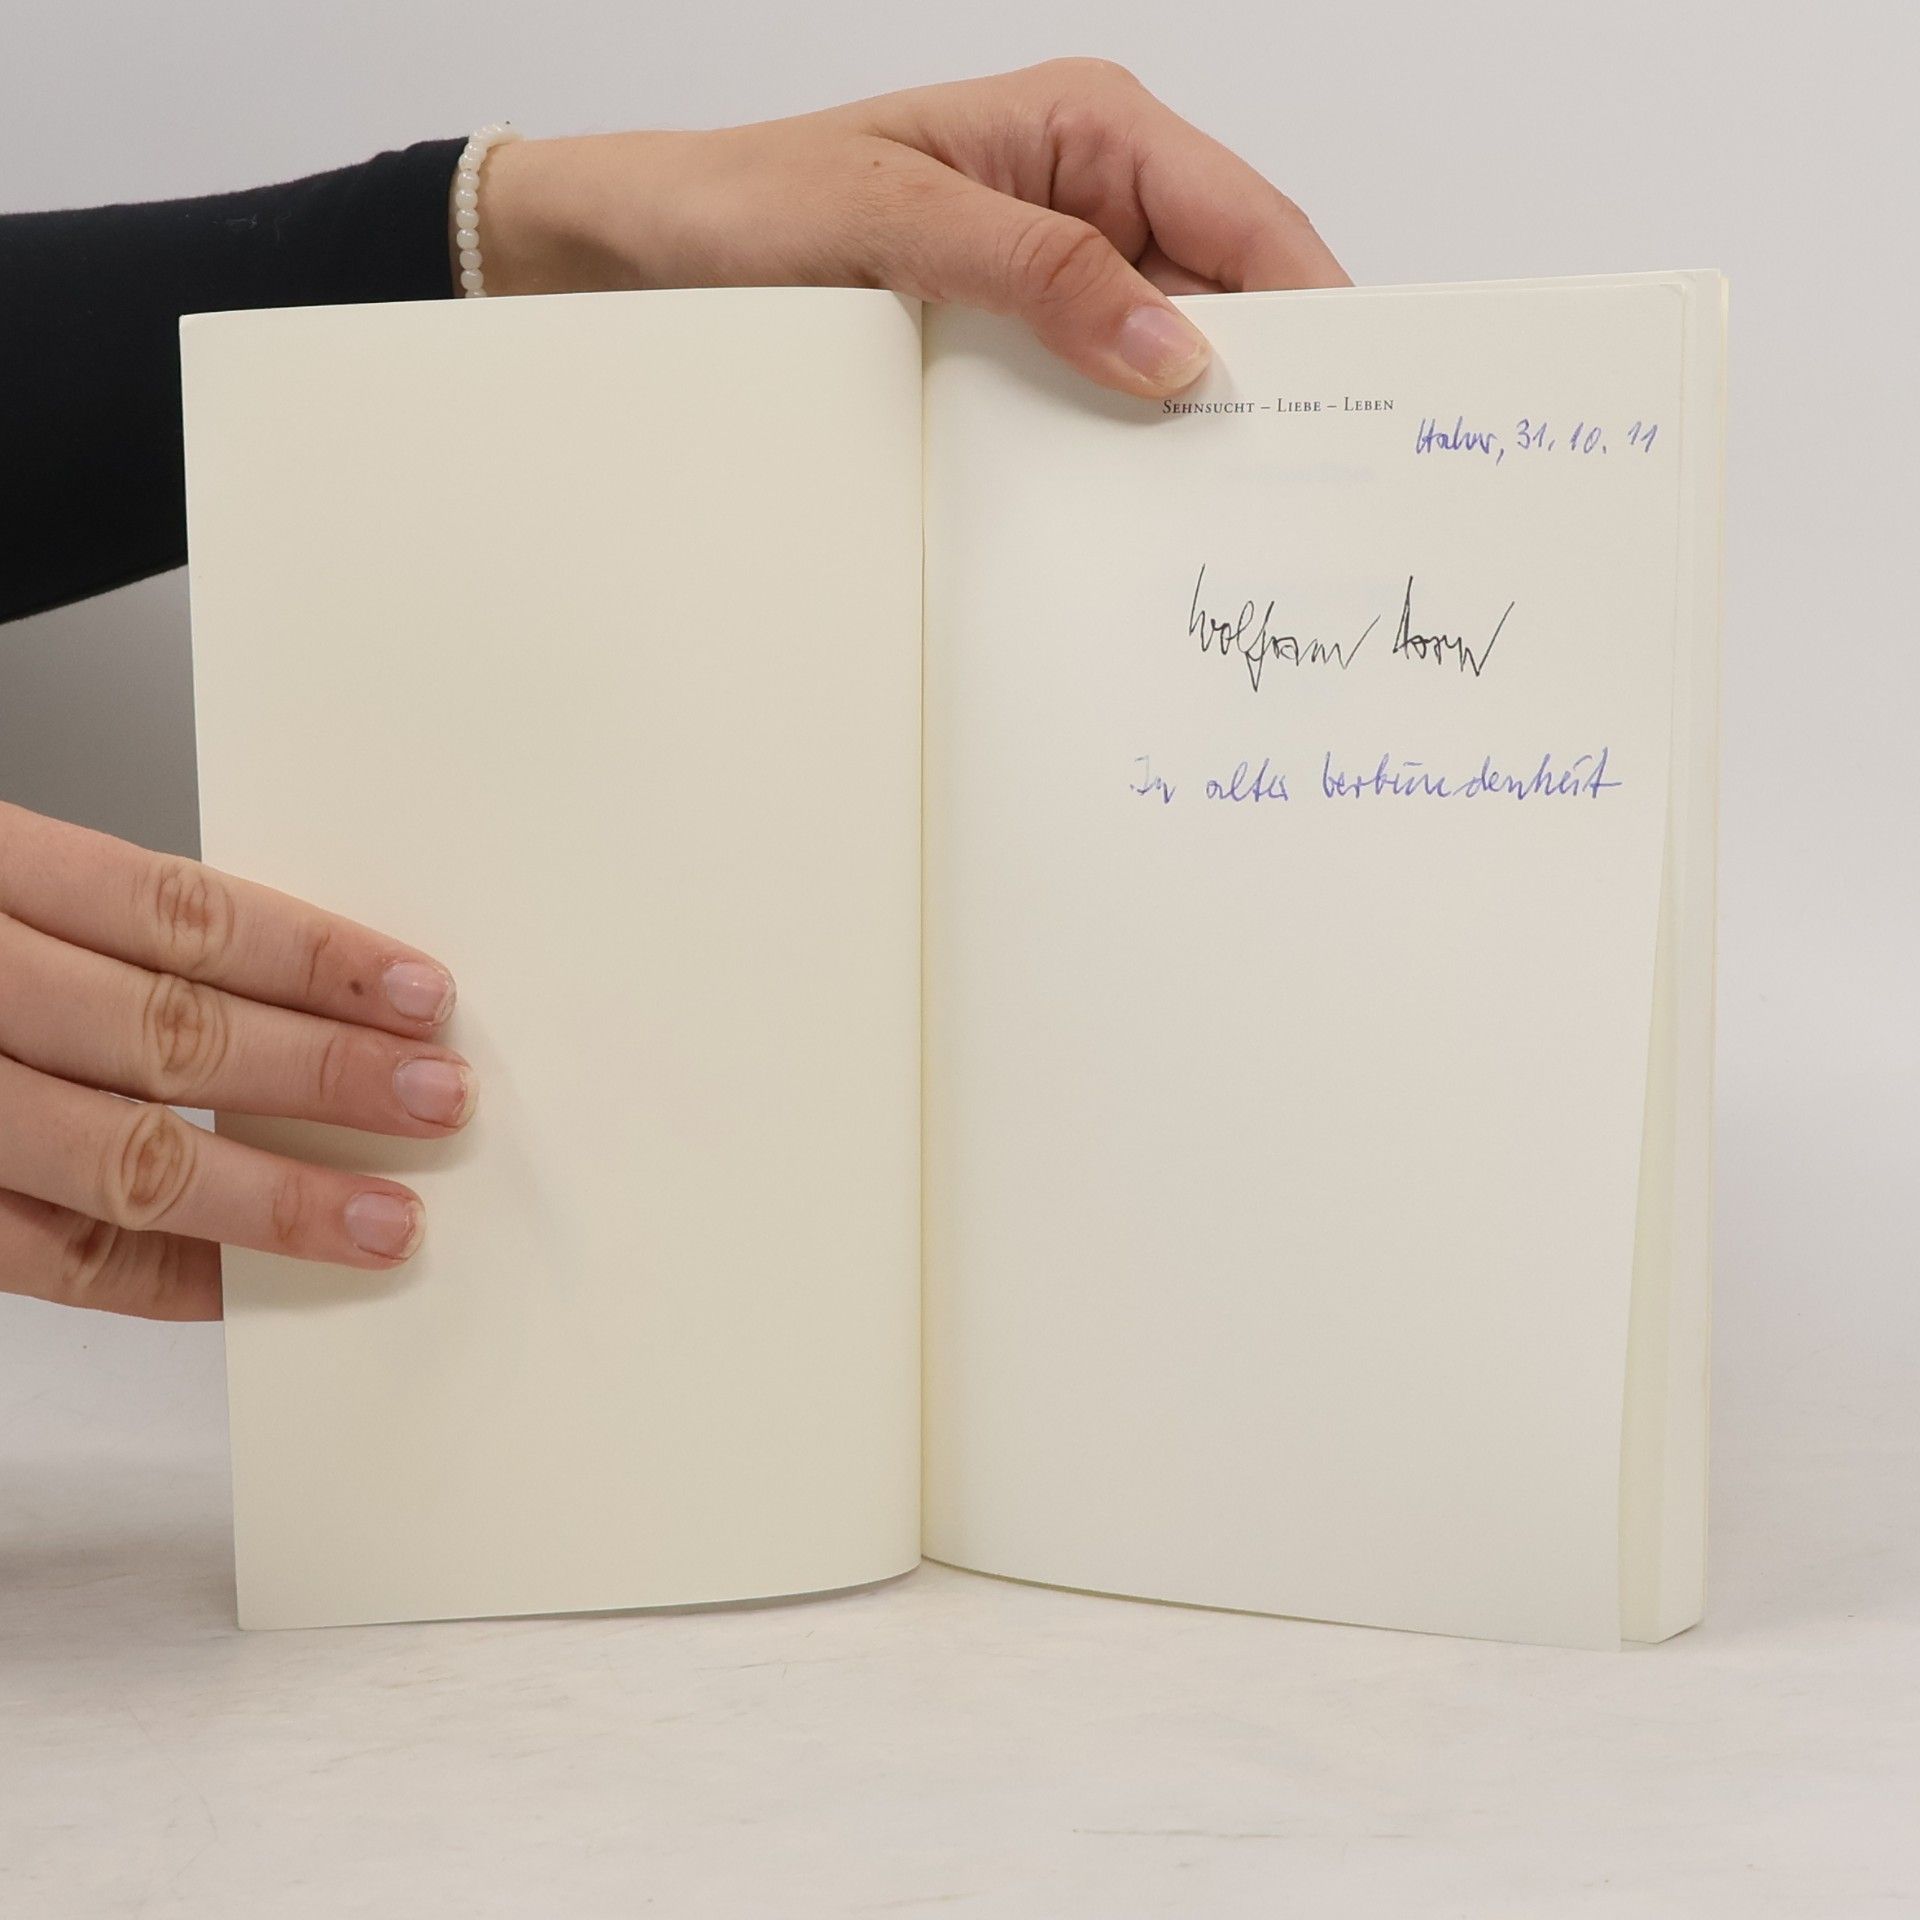 SEHNSUCHT – LIEBE – LEBEN
31. 10. 11
Wolfram Dorn
In alter Verbundenheit